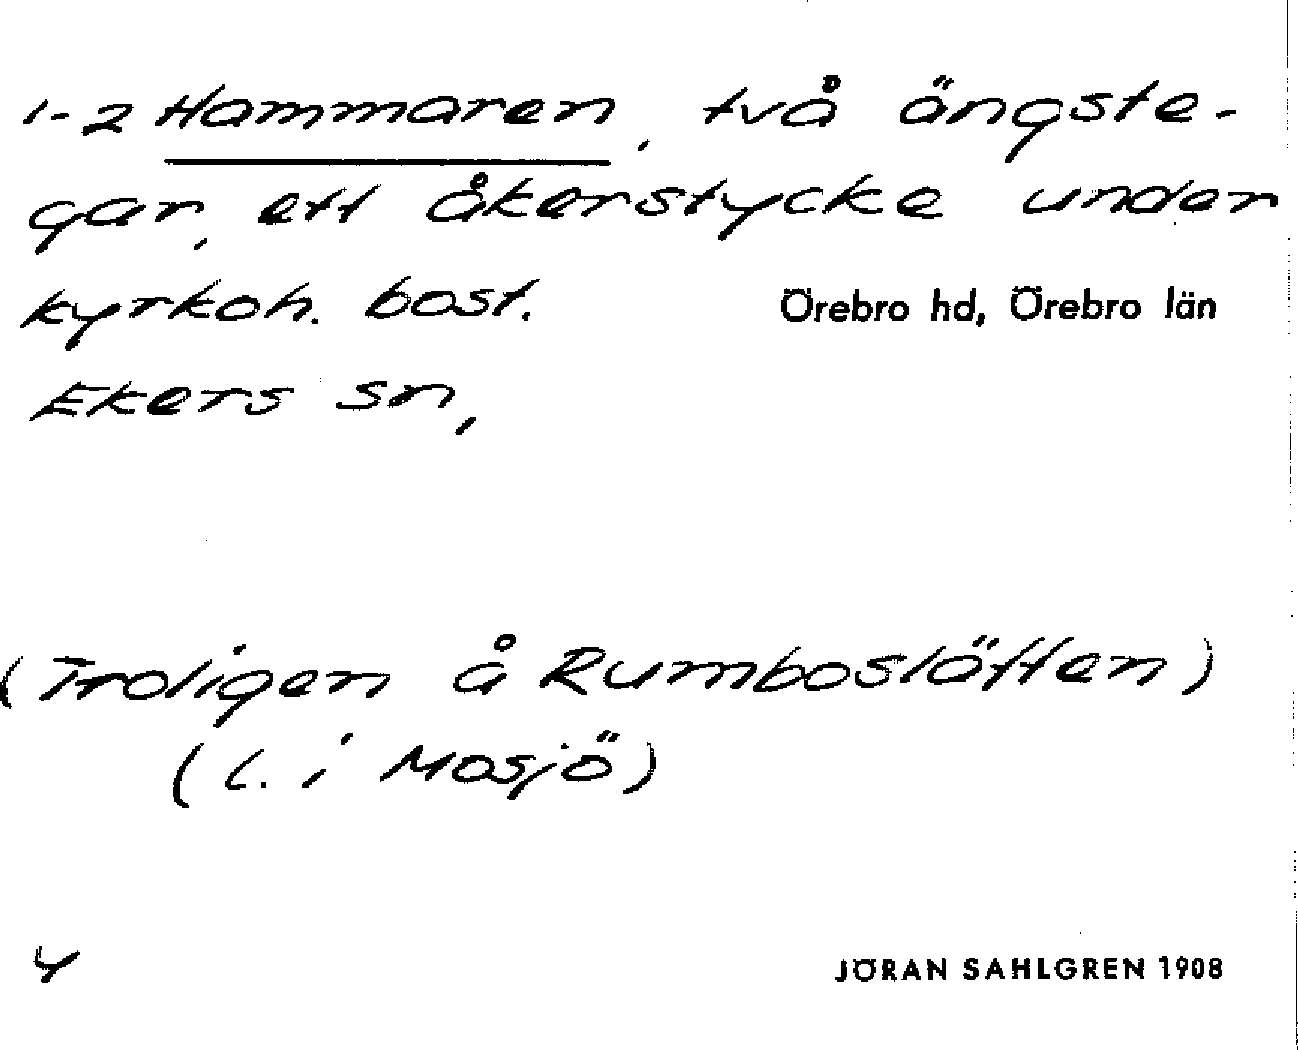 1-2 Hammaren, två ängste-
gar, ett åkerstycke under
kyrkoh. bost.
Örebro hd, Örebro län
Ekers sn,
(Troligen å Rumboslätten)
(l. i Mosjö)
4
JÖRAN SAHLGREN 1908